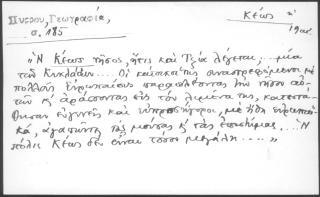 Πύρρου, Γεωγραφία,
σ. 185
Κέως
19αι.
"Ἡ Κέως νῆσος, ἥτις καὶ Τζιὰ λέγεται, ... μία
τῶν Κυκλάδων.... Οἱ κάτοικοί της ἀναστρεφόμενοι μὲ
πολλοὺς Εὐρωπαίους παραπλέοντας τὴν νῆσον αὐ-
τῶν κ' ἀράσσοντας εἰς τὸν λιμένα της, κατεστά-
θησαν εὐγενεῖς καὶ εὐπροσήγοροι, μὲ ἤθη εὐρωπαϊ-
κά, ἀγαπῶντες τὰς μούσας κ' τὰς ἐπιστήμας... Ἡ
πόλις Κέως δὲν εἶναι τόσον μεγάλη....."